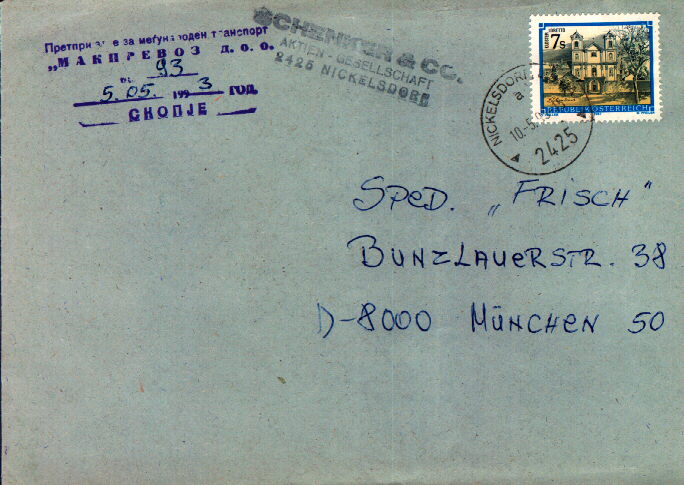 Претприятие за меѓународен транспорт
„МАКПРЕВОЗ д. о. о.
93
5. 05. 1993 ГОД.
СКОПЈЕ
SCHENKER & CO.
AKTIEN-GESELLSCHAFT
2425 NICKELSDORF
7s
LORETTO
REPUBLIK ÖSTERREICH
NICKELSDORF
a
10.-5.
2425
SPED. „FRISCH"
BUNZLAUERSTR. 38
D-8000 MÜNCHEN 50